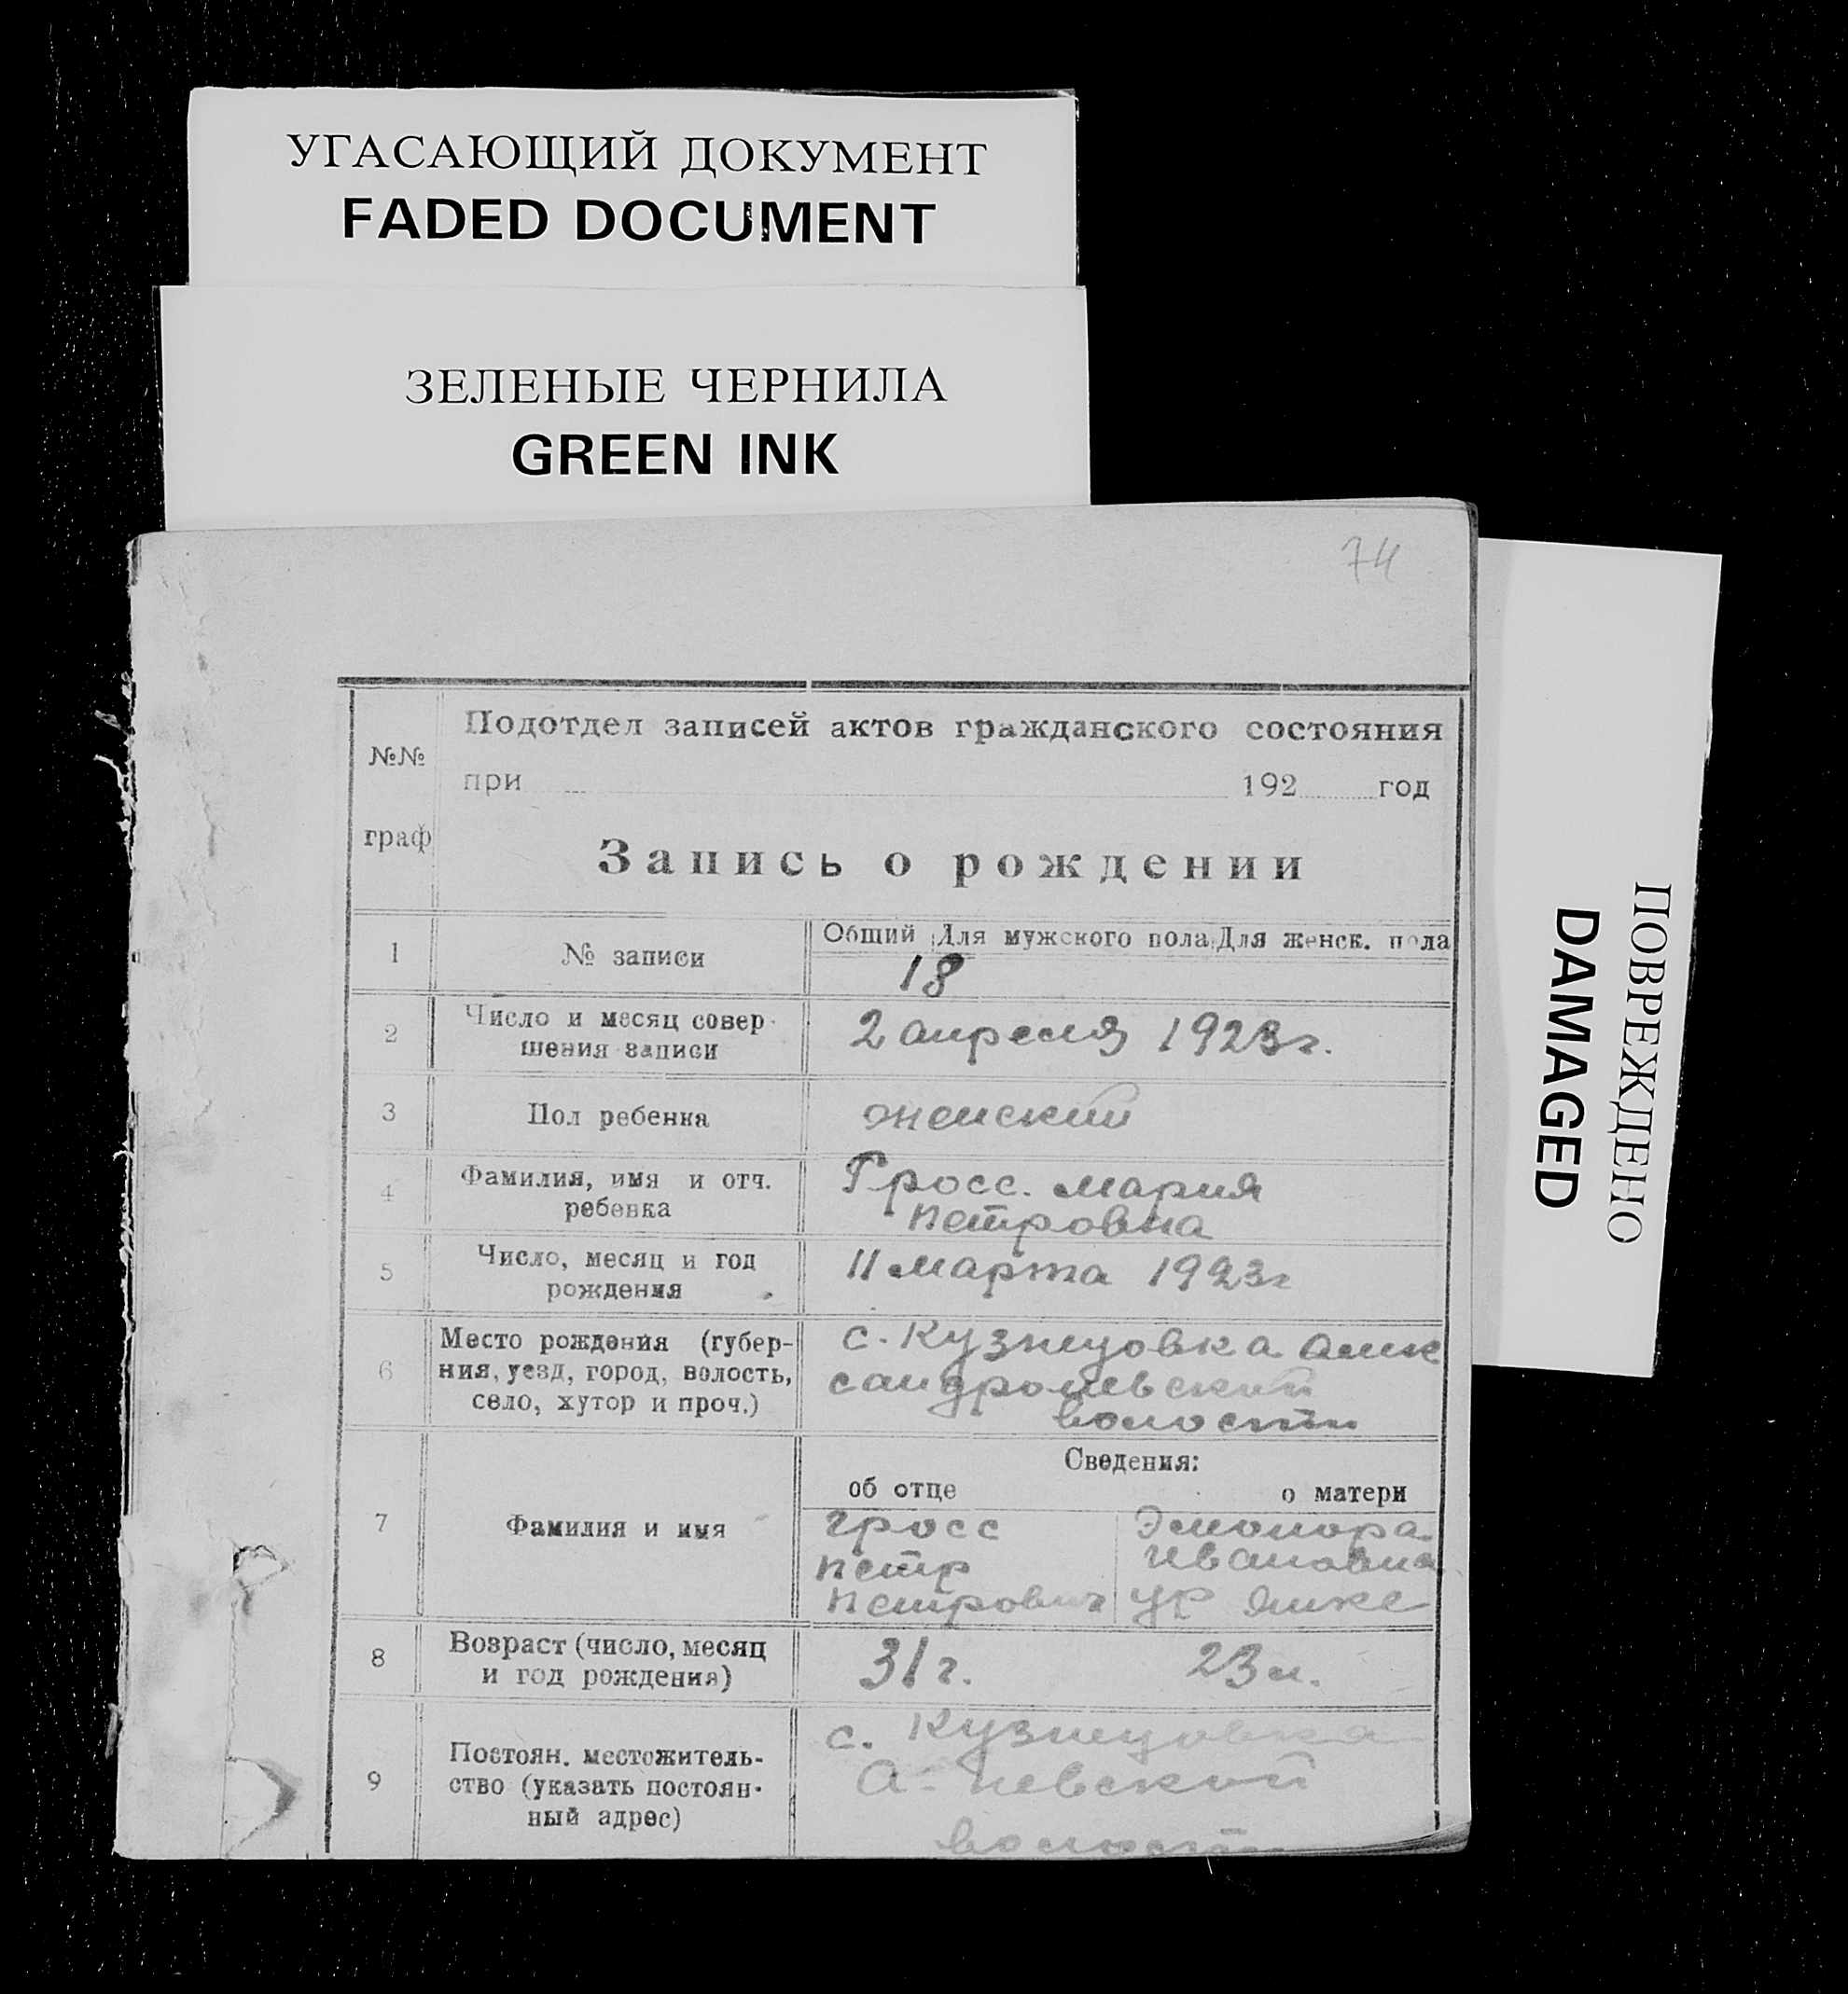 УГАСАЮЩИЙ ДОКУМЕНТ
FADED DOCUMENT
ЗЕЛЕНЫЕ ЧЕРНИЛА
GREEN INK
ПОВРЕЖДЕНО
DAMAGED
74
№№
граф
Подотдел записей актов гражданского состояния
при 192 год
Запись о рождении
1
№ записи
Общий Для мужского пола Для женск. пола
18
2
Число и месяц совер-
шения записи
2 апреля 1923г.
3
Пол ребенка
женский
4
Фамилия, имя и отч.
ребенка
Гросс. Мария
Петровна
5
Число, месяц и год
рождения
11 марта 1923г
6
Место рождения (губер-
ния, уезд, город, волость,
село, хутор и проч.)
с. Кузнецовка Алек
сандроневский
волости
7
Фамилия и имя
Сведения:
об отце
о матери
Гросс
Петр
Петрович
Элонора
Ивановна
ур
8
Возраст (число, месяц
и год рождения)
31 г.
23 л.
9
Постоян. местожитель-
ство (указать постоян-
ный адрес)
с. Кузнецовка
А-невской
волости